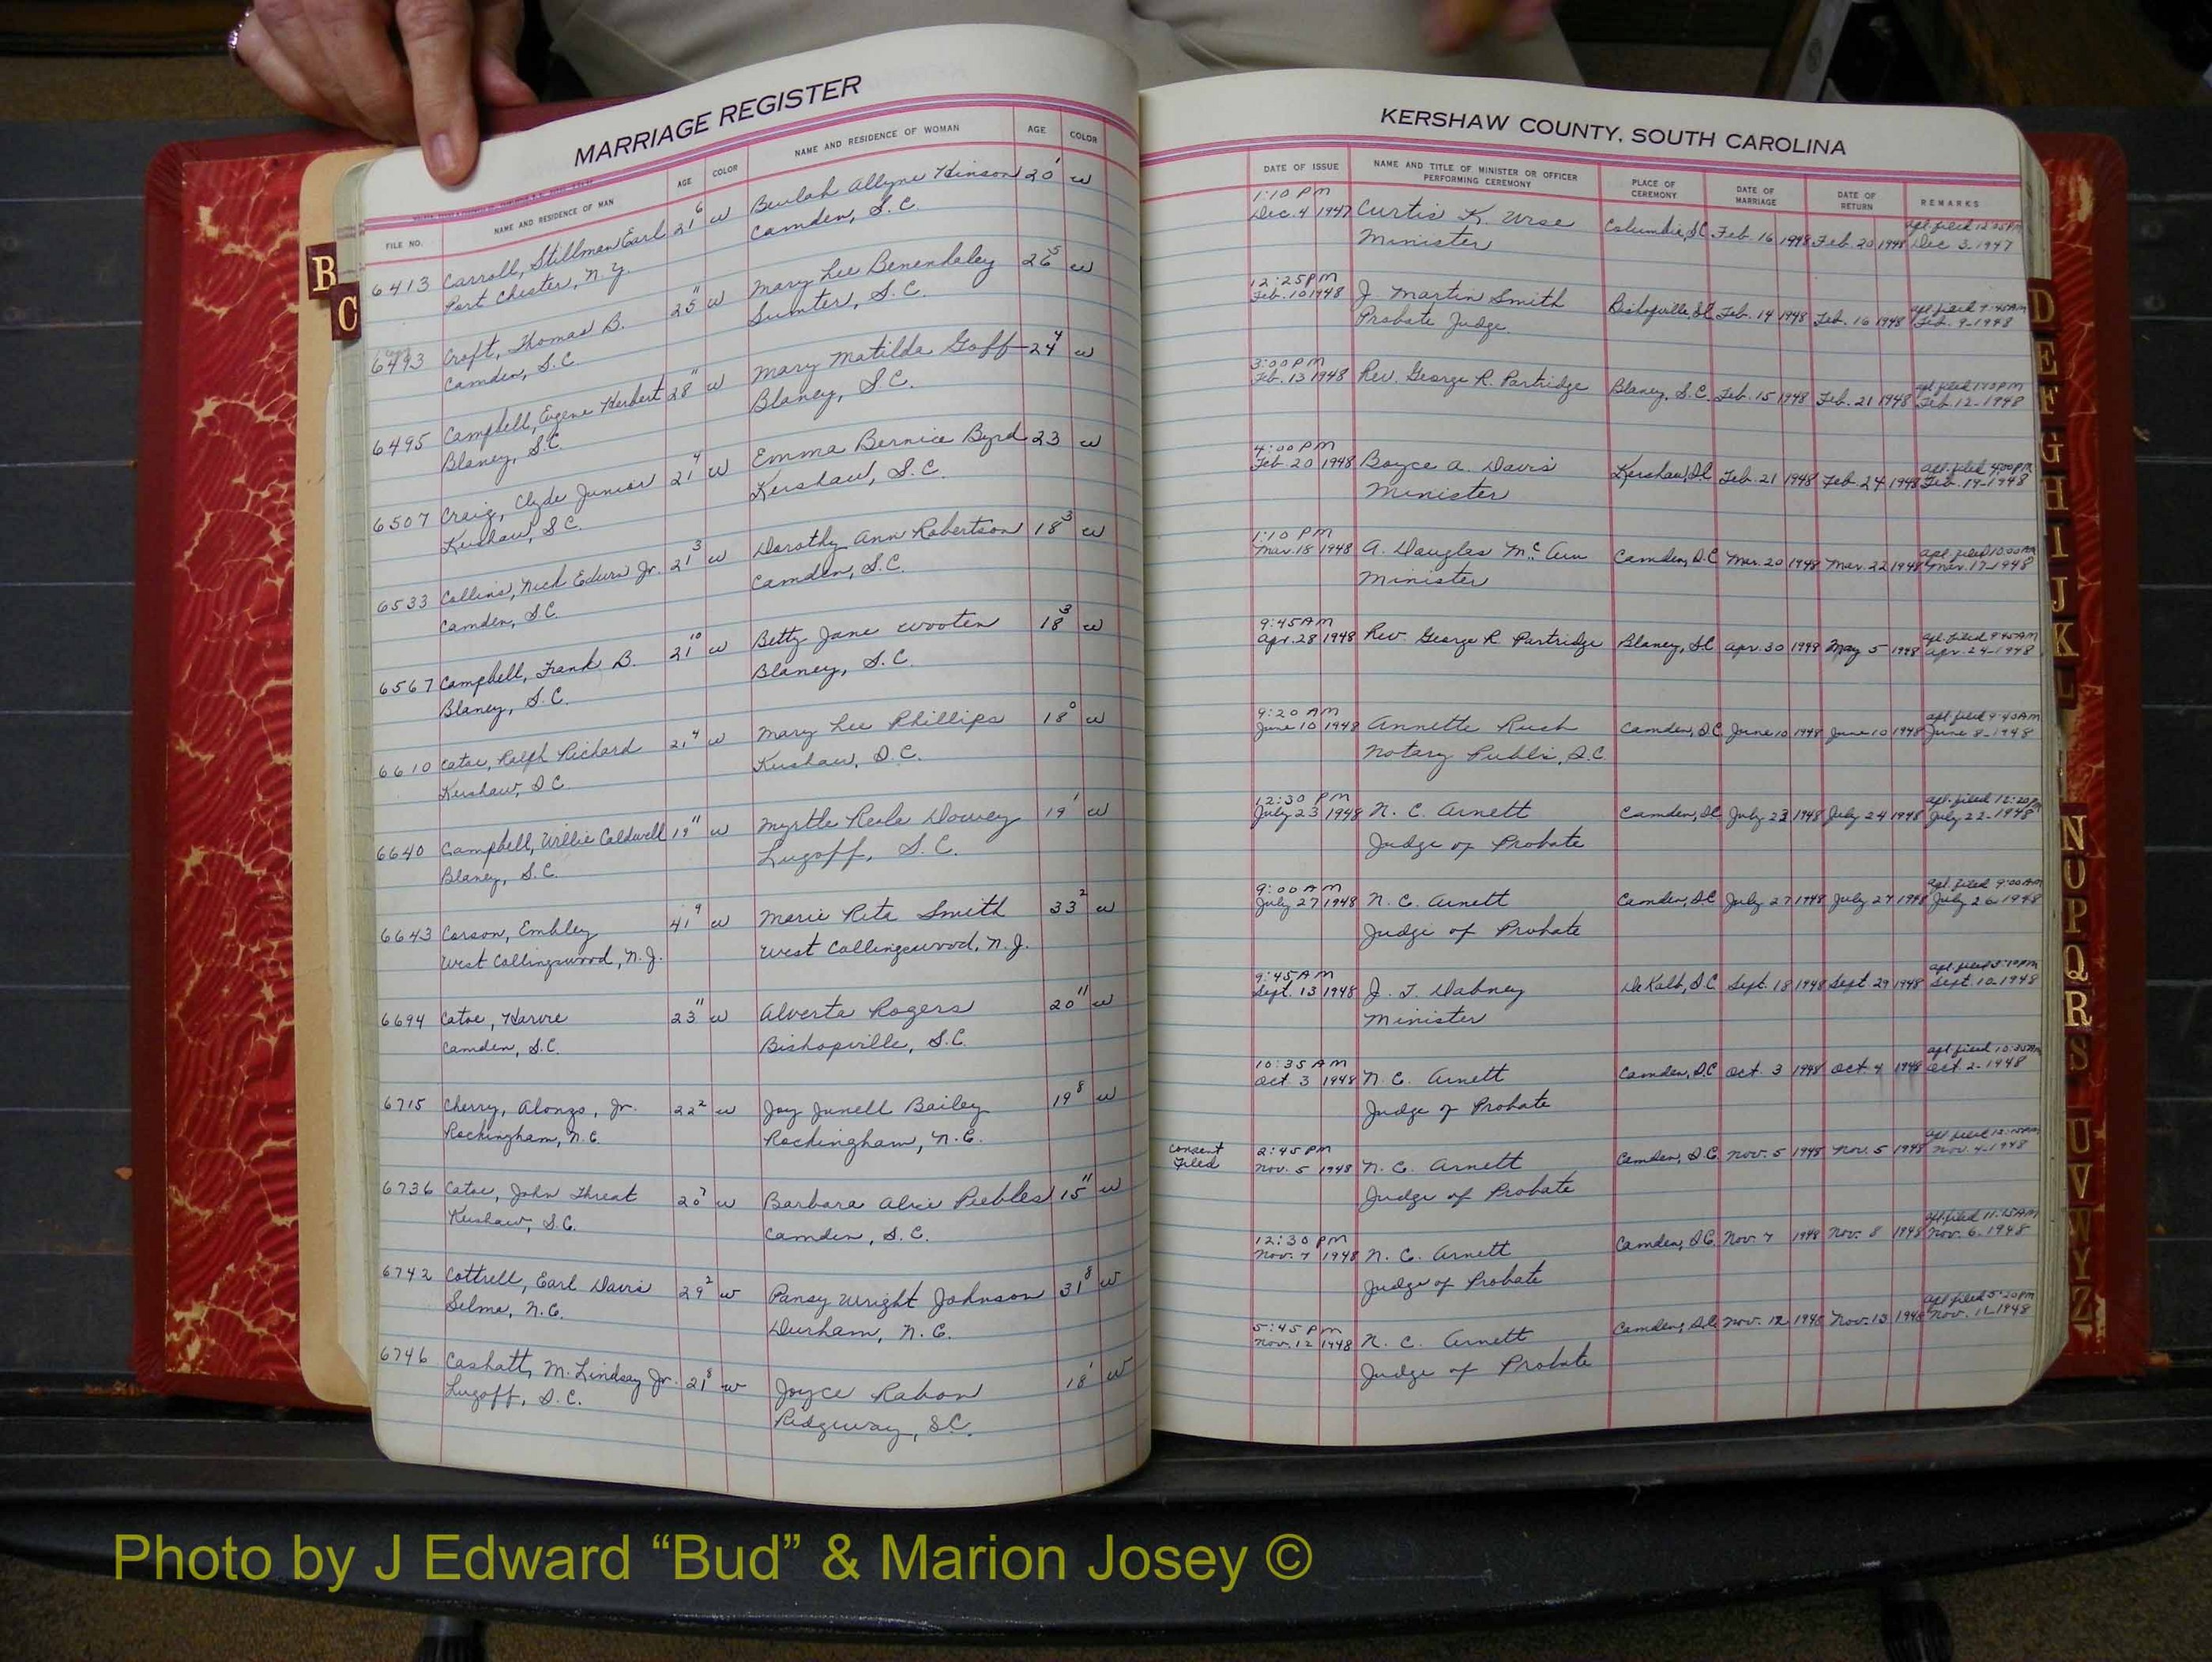 MARRIAGE REGISTER
FILE NO. NAME AND RESIDENCE OF MAN AGE COLOR NAME AND RESIDENCE OF WOMAN AGE COLOR
6413 Carroll, Stillman Earl 21 6 w Beulah Allyne Hinson 20 1 w
Port Chester, N.Y. Camden, S.C.
6493 Croft, Thomas B. 25 11 w Mary Lee Benenhaley 26 5 w
Camden, S.C. Sumter, S.C.
6495 Campbell, Eugene Herbert 28 11 w Mary Matilda Goff 24 4 w
Blaney, S.C. Blaney, S.C.
6507 Craig, Clyde Junior 21 4 w Emma Bernice Byrd 23 w
Kershaw, S.C. Kershaw, S.C.
6533 Collins, Nick Jr. 21 3 w Dorothy Ann Robertson 18 3 w
Camden, S.C. Camden, S.C.
6567 Campbell, Frank B. 21 10 w Betty Jane Wooten 18 3 w
Blaney, S.C. Blaney, S.C.
6610 Catoe, Ralph Richard 21 4 w Mary Lee Phillips 18 0 w
Kershaw, S.C. Kershaw, S.C.
6640 Campbell, Willie Caldwell 19 11 w Myrtle 19 1 w
Blaney, S.C. Lugoff, S.C.
6643 Corson, Embley 41 9 w Marie Rita Smith 33 2 w
West Collingswood, N.J. West Collingswood, N.J.
6694 Catoe, 23 11 w Alverta Rogers 20 11 w
Camden, S.C. Bishopville, S.C.
6715 Cherry, Alonzo, Jr. 22 2 w Joy Junell Bailey 19 8 w
Rockingham, N.C. Rockingham, N.C.
6736 Catoe, John Threat 20 7 w Barbara Alice Peebles 15 11 w
Kershaw, S.C. Camden, S.C.
6742 Cottrell, Earl Davis 29 2 w Pansy Wright Johnson 31 8 w
Selma, N.C. Durham, N.C.
6746 Cashatt, M. Lindsay Jr. 21 8 w Joyce Rabon 18 1 w
Lugoff, S.C. Ridgeway, S.C.
KERSHAW COUNTY, SOUTH CAROLINA
DATE OF ISSUE NAME AND TITLE OF MINISTER OR OFFICER PERFORMING CEREMONY PLACE OF CEREMONY DATE OF MARRIAGE DATE OF RETURN REMARKS
1:10 PM apl. filed 12:05 PM
Dec. 4 1947 Curtis K. Wise Columbia, SC Feb. 16 1948 Feb. 20 1948 Dec 3. 1947
Minister
12:25 PM apl. filed 9:45 AM
Feb. 10 1948 J. Martin Smith Bishopville, SC Feb. 14 1948 Feb. 16 1948 Feb. 9-1948
Probate Judge.
3:00 PM apl. filed PM
Feb. 13 1948 Rev. George R. Partridge Blaney, S.C. Feb. 15 1948 Feb. 21 1948 Feb. 12-1948
4:00 PM apl. filed 4:00 PM
Feb 20 1948 Boyce A. Davis Kershaw, SC Feb. 21 1948 Feb. 24 1948 Feb. 19-1948
Minister
1:10 PM apl. filed 10:00 AM
Mar. 18 1948 A. Douglas Camden, S.C. Mar. 20 1948 Mar. 22 1948 Mar. 17-1948
Minister
9:45 AM apl. filed 9:45 AM
Apr. 28 1948 Rev. George R. Partridge Blaney, SC Apr. 30 1948 May 5 1948 Apr. 24-1948
9:20 AM apl. filed 9:40 AM
June 10 1948 Annette Rush Camden, S.C. June 10 1948 June 10 1948 June 8-1948
Notary Public, S.C.
12:30 PM apl. filed 12:20 PM
July 23 1948 N. C. Arnett Camden, SC July 23 1948 July 24 1948 July 22-1948
Judge of Probate
9:00 AM apl. filed 9:00 AM
July 27 1948 N. C. Arnett Camden, S.C. July 27 1948 July 27 1948 July 26 1948
Judge of Probate
9:45 AM apl. filed PM
Sept. 13 1948 J. T. Dabney DeKalb, S.C. Sept. 18 1948 Sept. 29 1948 Sept. 10-1948
Minister
10:35 AM apl. filed 10:35 AM
Oct. 3 1948 N. C. Arnett Camden, S.C. Oct. 3 1948 Oct. 4 1948 Oct. 2-1948
Judge of Probate
Consent 2:45 PM apl. filed PM
Filed Nov. 5 1948 N. C. Arnett Camden, S.C. Nov. 5 1948 Nov. 5 1948 Nov. 4-1948
Judge of Probate
12:30 PM apl. filed 11:15 AM
Nov. 7 1948 N. C. Arnett Camden, S.C. Nov. 7 1948 Nov. 8 1948 Nov. 6. 1948
Judge of Probate
5:45 PM apl. filed 5:20 PM
Nov. 12 1948 N. C. Arnett Camden, S.C. Nov. 12 1948 Nov. 13 1948 Nov. 11-1948
Judge of Probate
B
C
D
E
F
G
H
I
J
K
L
N
O
P
Q
R
S
U
V
W
Y
Z
Photo by J Edward “Bud” & Marion Josey ©